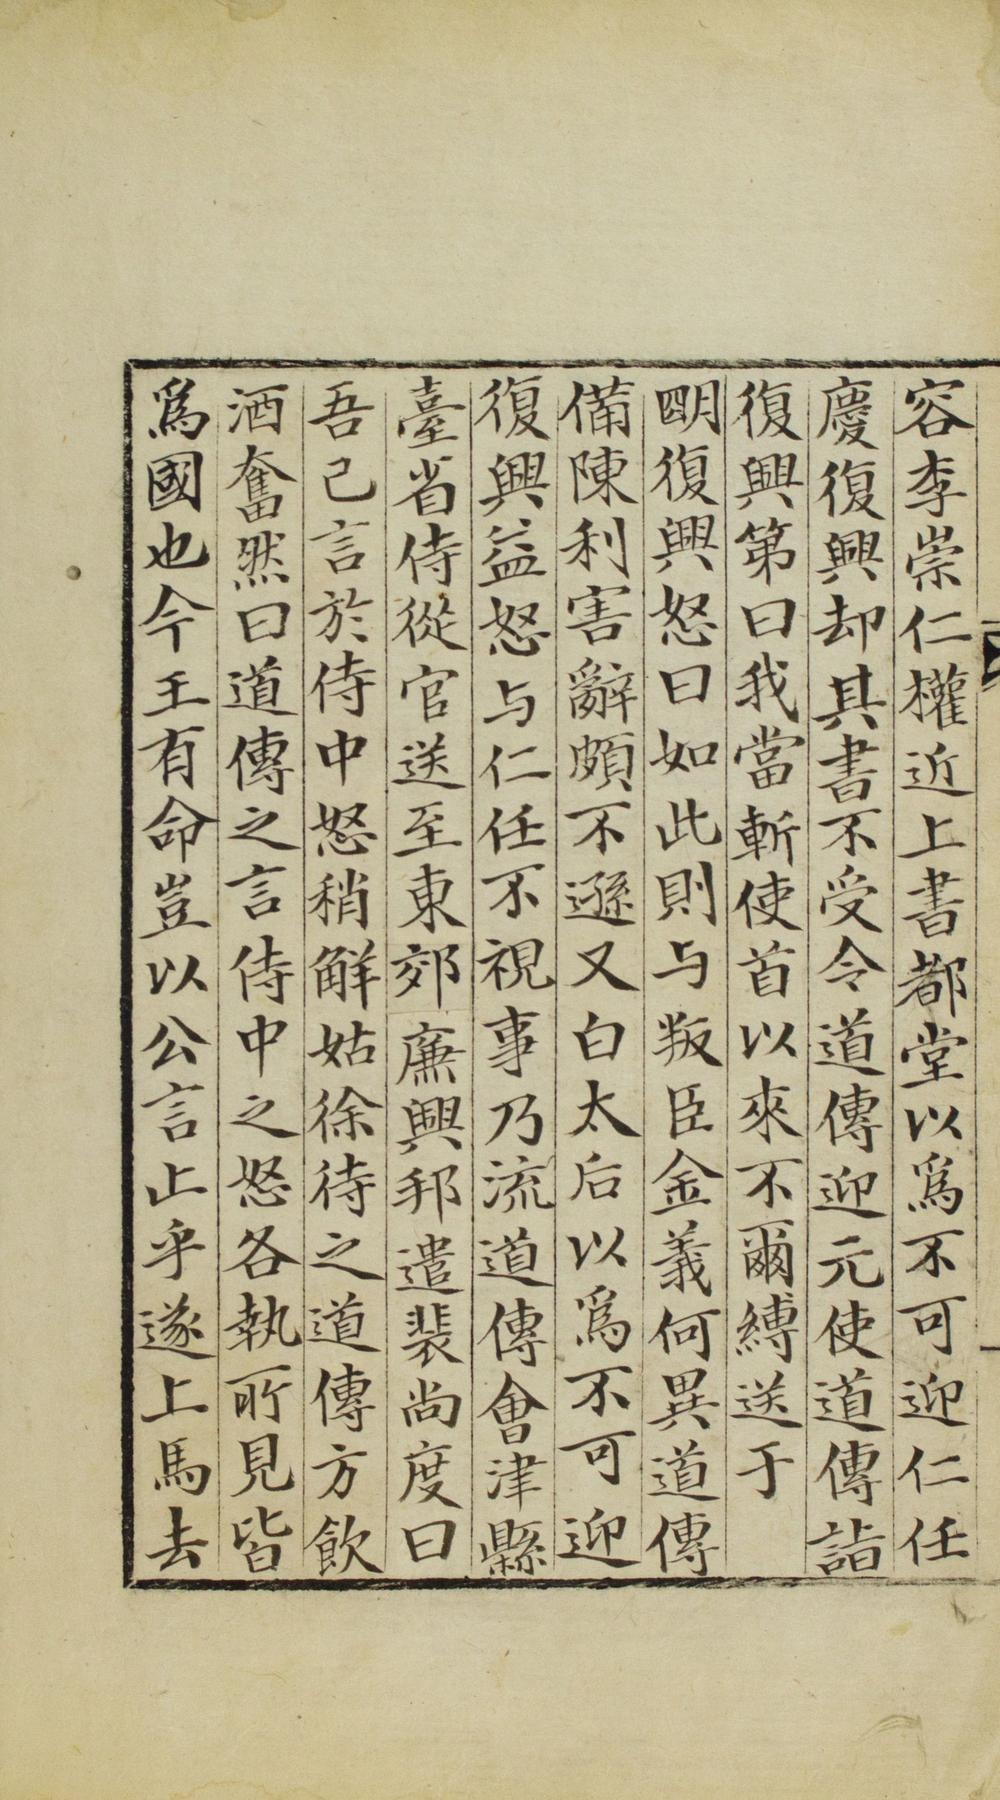 容李崇仁權近上書都堂以爲不可迎仁任
慶復興却其書不受令道傳迎元使道傳詣
復興第曰我當斬使首以來不爾縛送于
朙復興怒曰如此則与叛臣金義何異道傳
備陳利害辭頗不遜又白太后以爲不可迎
復興益怒与仁任不視事乃流道傳會津縣
臺省侍從官送至東郊廉興邦遣裴尚度曰
吾已言於侍中怒稍解姑徐待之道傳方飮
酒奮然曰道傳之言侍中之怒各執所見皆
爲國也今王有命豈以公言止乎遂上馬去